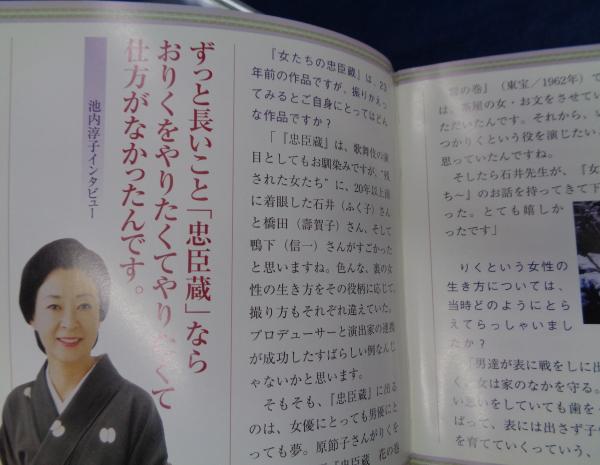 ずっと長いこと「忠臣蔵」なら
おりくをやりたくてやりたくて
仕方がなかったんです。
池内淳子インタビュー
『女たちの忠臣蔵』は、23
年前の作品ですが、振りかえっ
てみるとご自身にとってはどん
な作品ですか？
「『忠臣蔵』は、歌舞伎の演
目としてもお馴染みですが、"残
された女たち"に、20年以上前
に着眼した石井（ふく子）さん
と橋田（壽賀子）さん、そして
鴨下（信一）さんがすごかった
と思いますね。色んな、裏の女
性の生き方をその役柄に応じて、
撮り方もそれぞれ違えていた。
プロデューサーと演出家の連携
が成功したすばらしい例なんじ
ゃないかと思います。
そもそも、『忠臣蔵』に出る
のは、女優にとっても男優にと
っても夢。原節子さんがりくを
『忠臣蔵 花の巻
雪の巻』（東宝／1962年）で
は、茶屋の女・お文をさせてい
ただいたんです。それから、い
つかりくという役を演じたい、
思っていたんですね。
そしたら石井先生が、『女
ち〜』のお話を持ってきて下
った。とても嬉しか
ったです」
りくという女性の
生き方については、
当時どのようにとら
えてらっしゃいまし
たか？
「男達が表に戦をしに出
く、女は家のなかを守る。
い思いをしていても歯を
ばって、表には出さず子
を育てていくっていう、